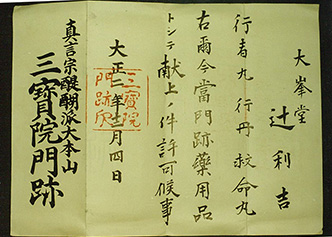 大峯堂
辻利吉
行者丸 行丹 救命丸
右爾今當門跡藥用品
トシテ献上ノ件許可候事
大正二年十一月四日
三寳院
門跡印
真言宗醍醐派大本山
三寳院門跡